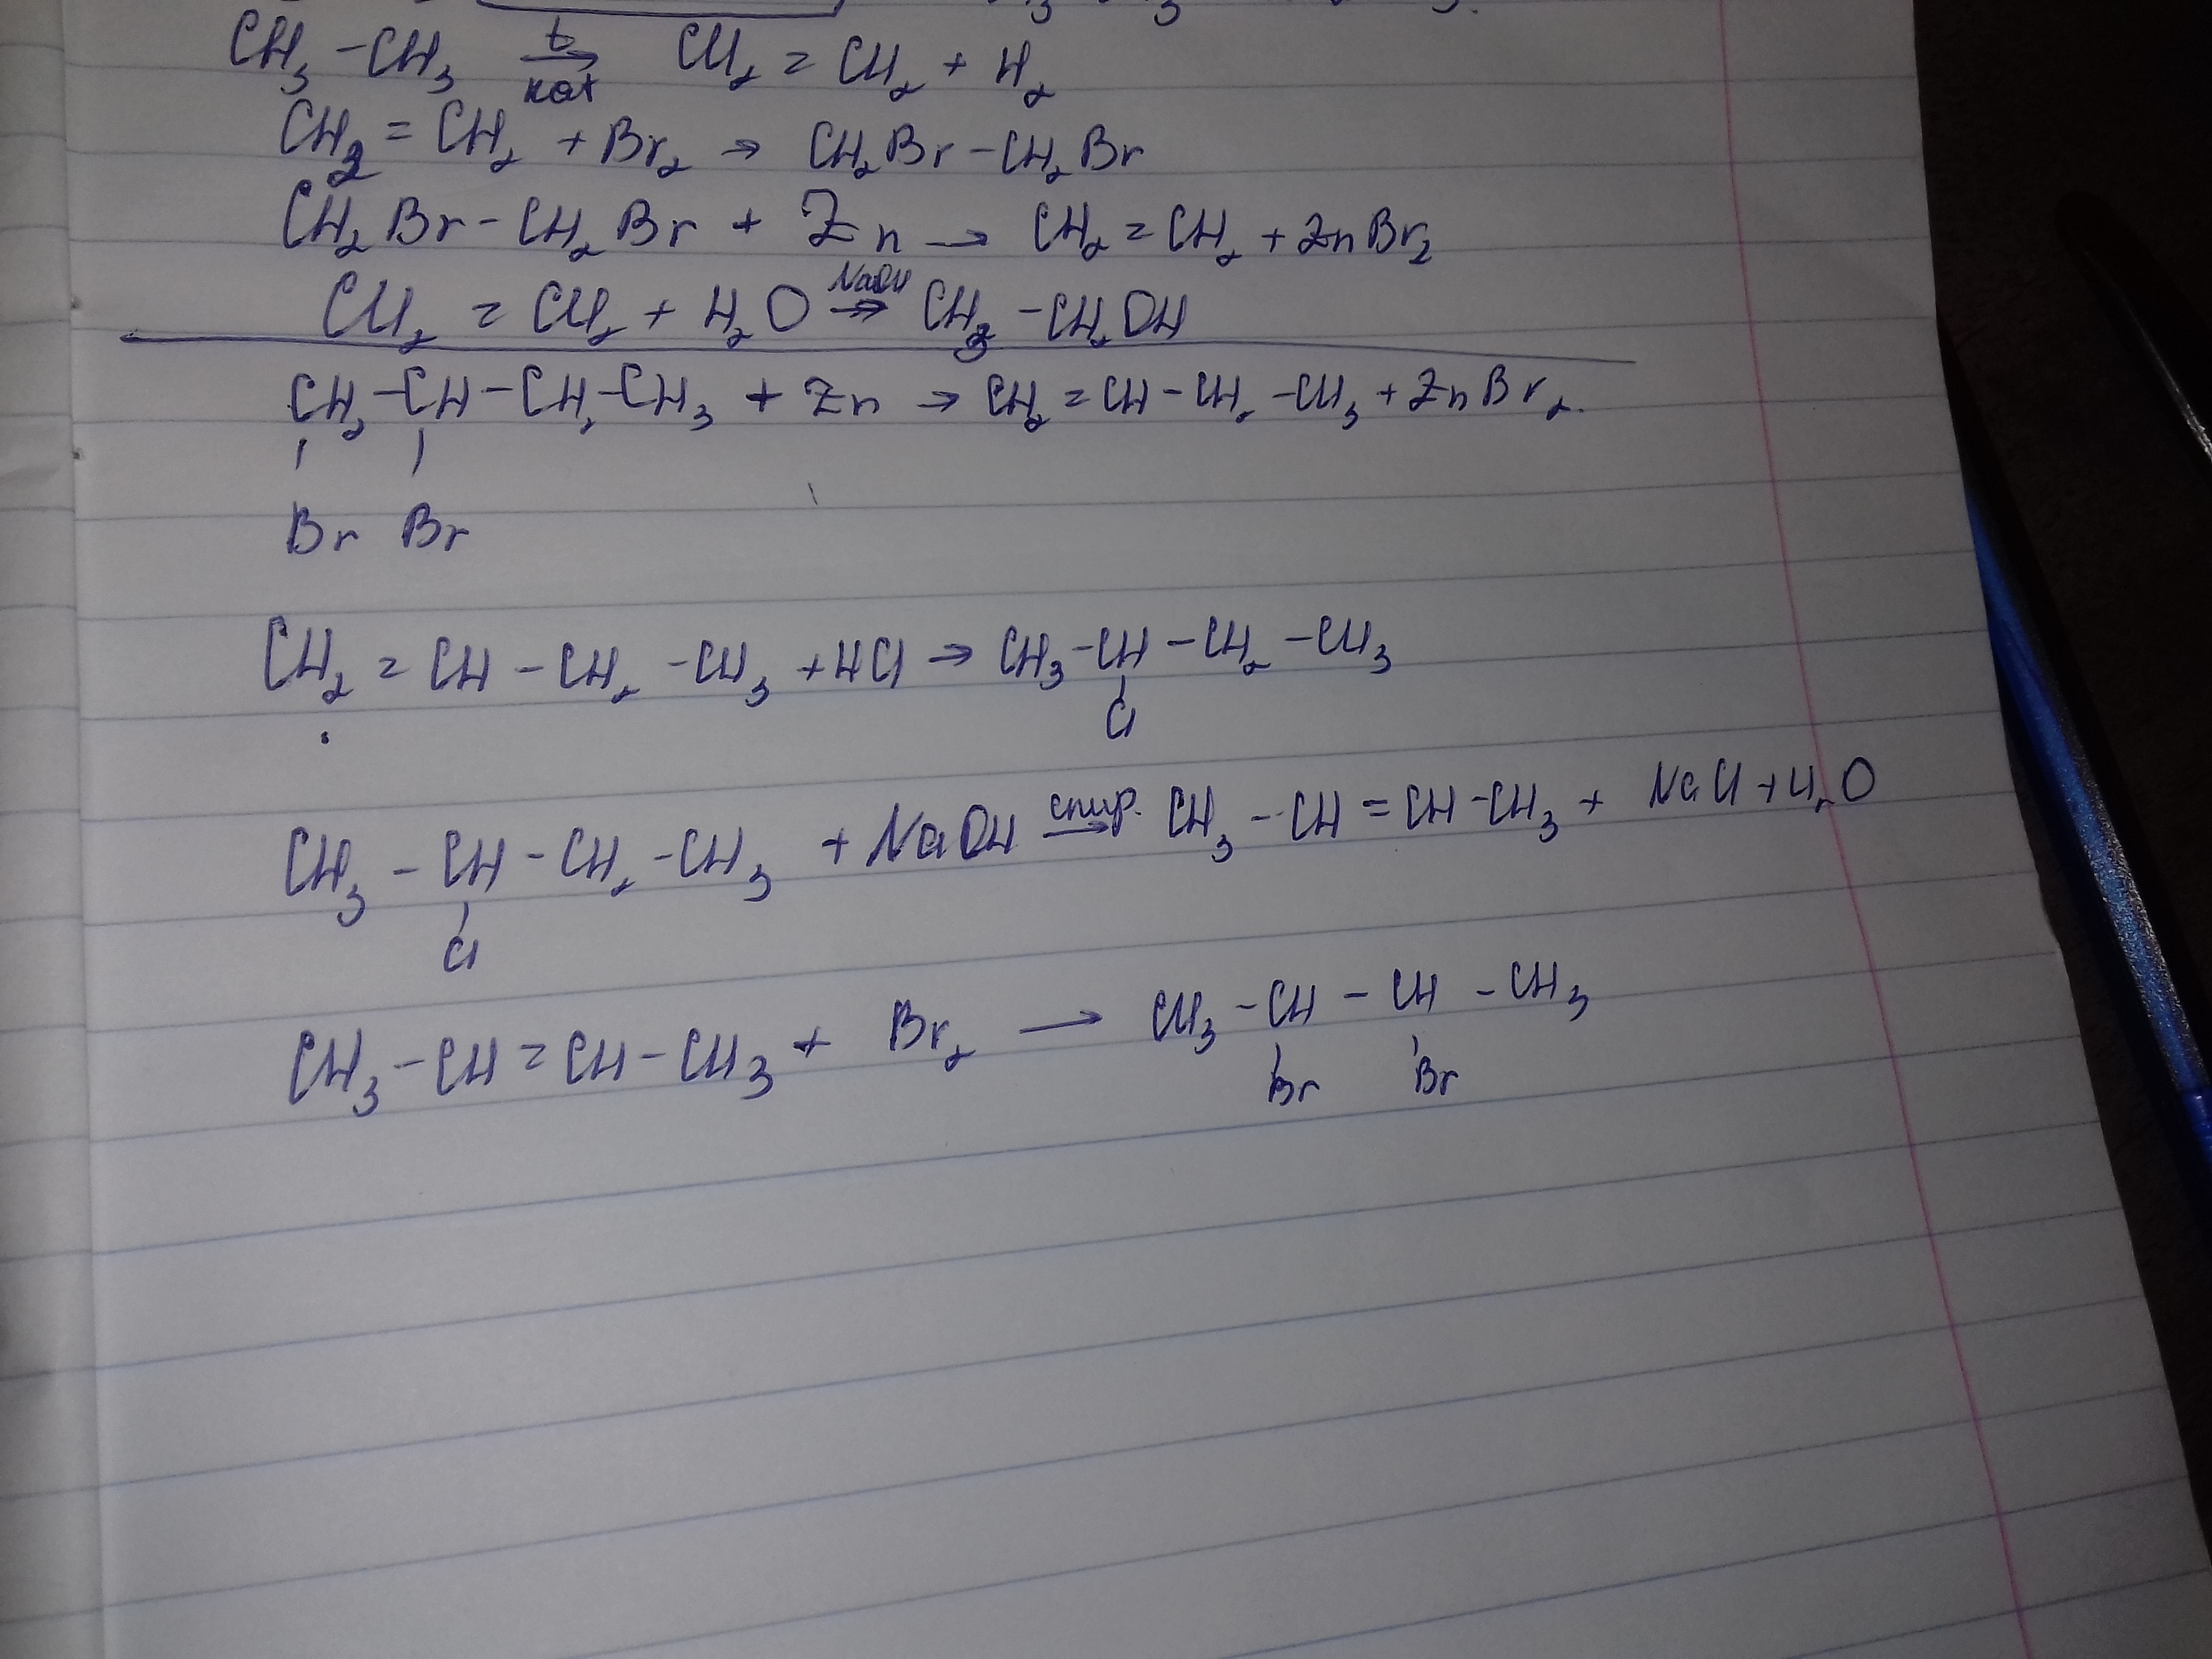 CH₃ - CH₃ →(t, кат) CH₂ = CH₂ + H₂
CH₂ = CH₂ + Br₂ → CH₂Br - CH₂Br
CH₂Br - CH₂Br + Zn → CH₂ = CH₂ + ZnBr₂
CH₂ = CH₂ + H₂O →(NaOH) CH₃ - CH₂OH
CH₂ - CH - CH₂ - CH₃ + Zn → CH₂ = CH - CH₂ - CH₃ + ZnBr₂.
Br Br
CH₂ = CH - CH₂ - CH₃ + HCl → CH₃ - CH - CH₂ - CH₃
Cl
CH₃ - CH - CH₂ - CH₃ + NaOH →(спир.) CH₃ - CH = CH - CH₃ + NaCl + H₂O
Cl
CH₃ - CH = CH - CH₃ + Br₂ → CH₃ - CH - CH - CH₃
Br Br